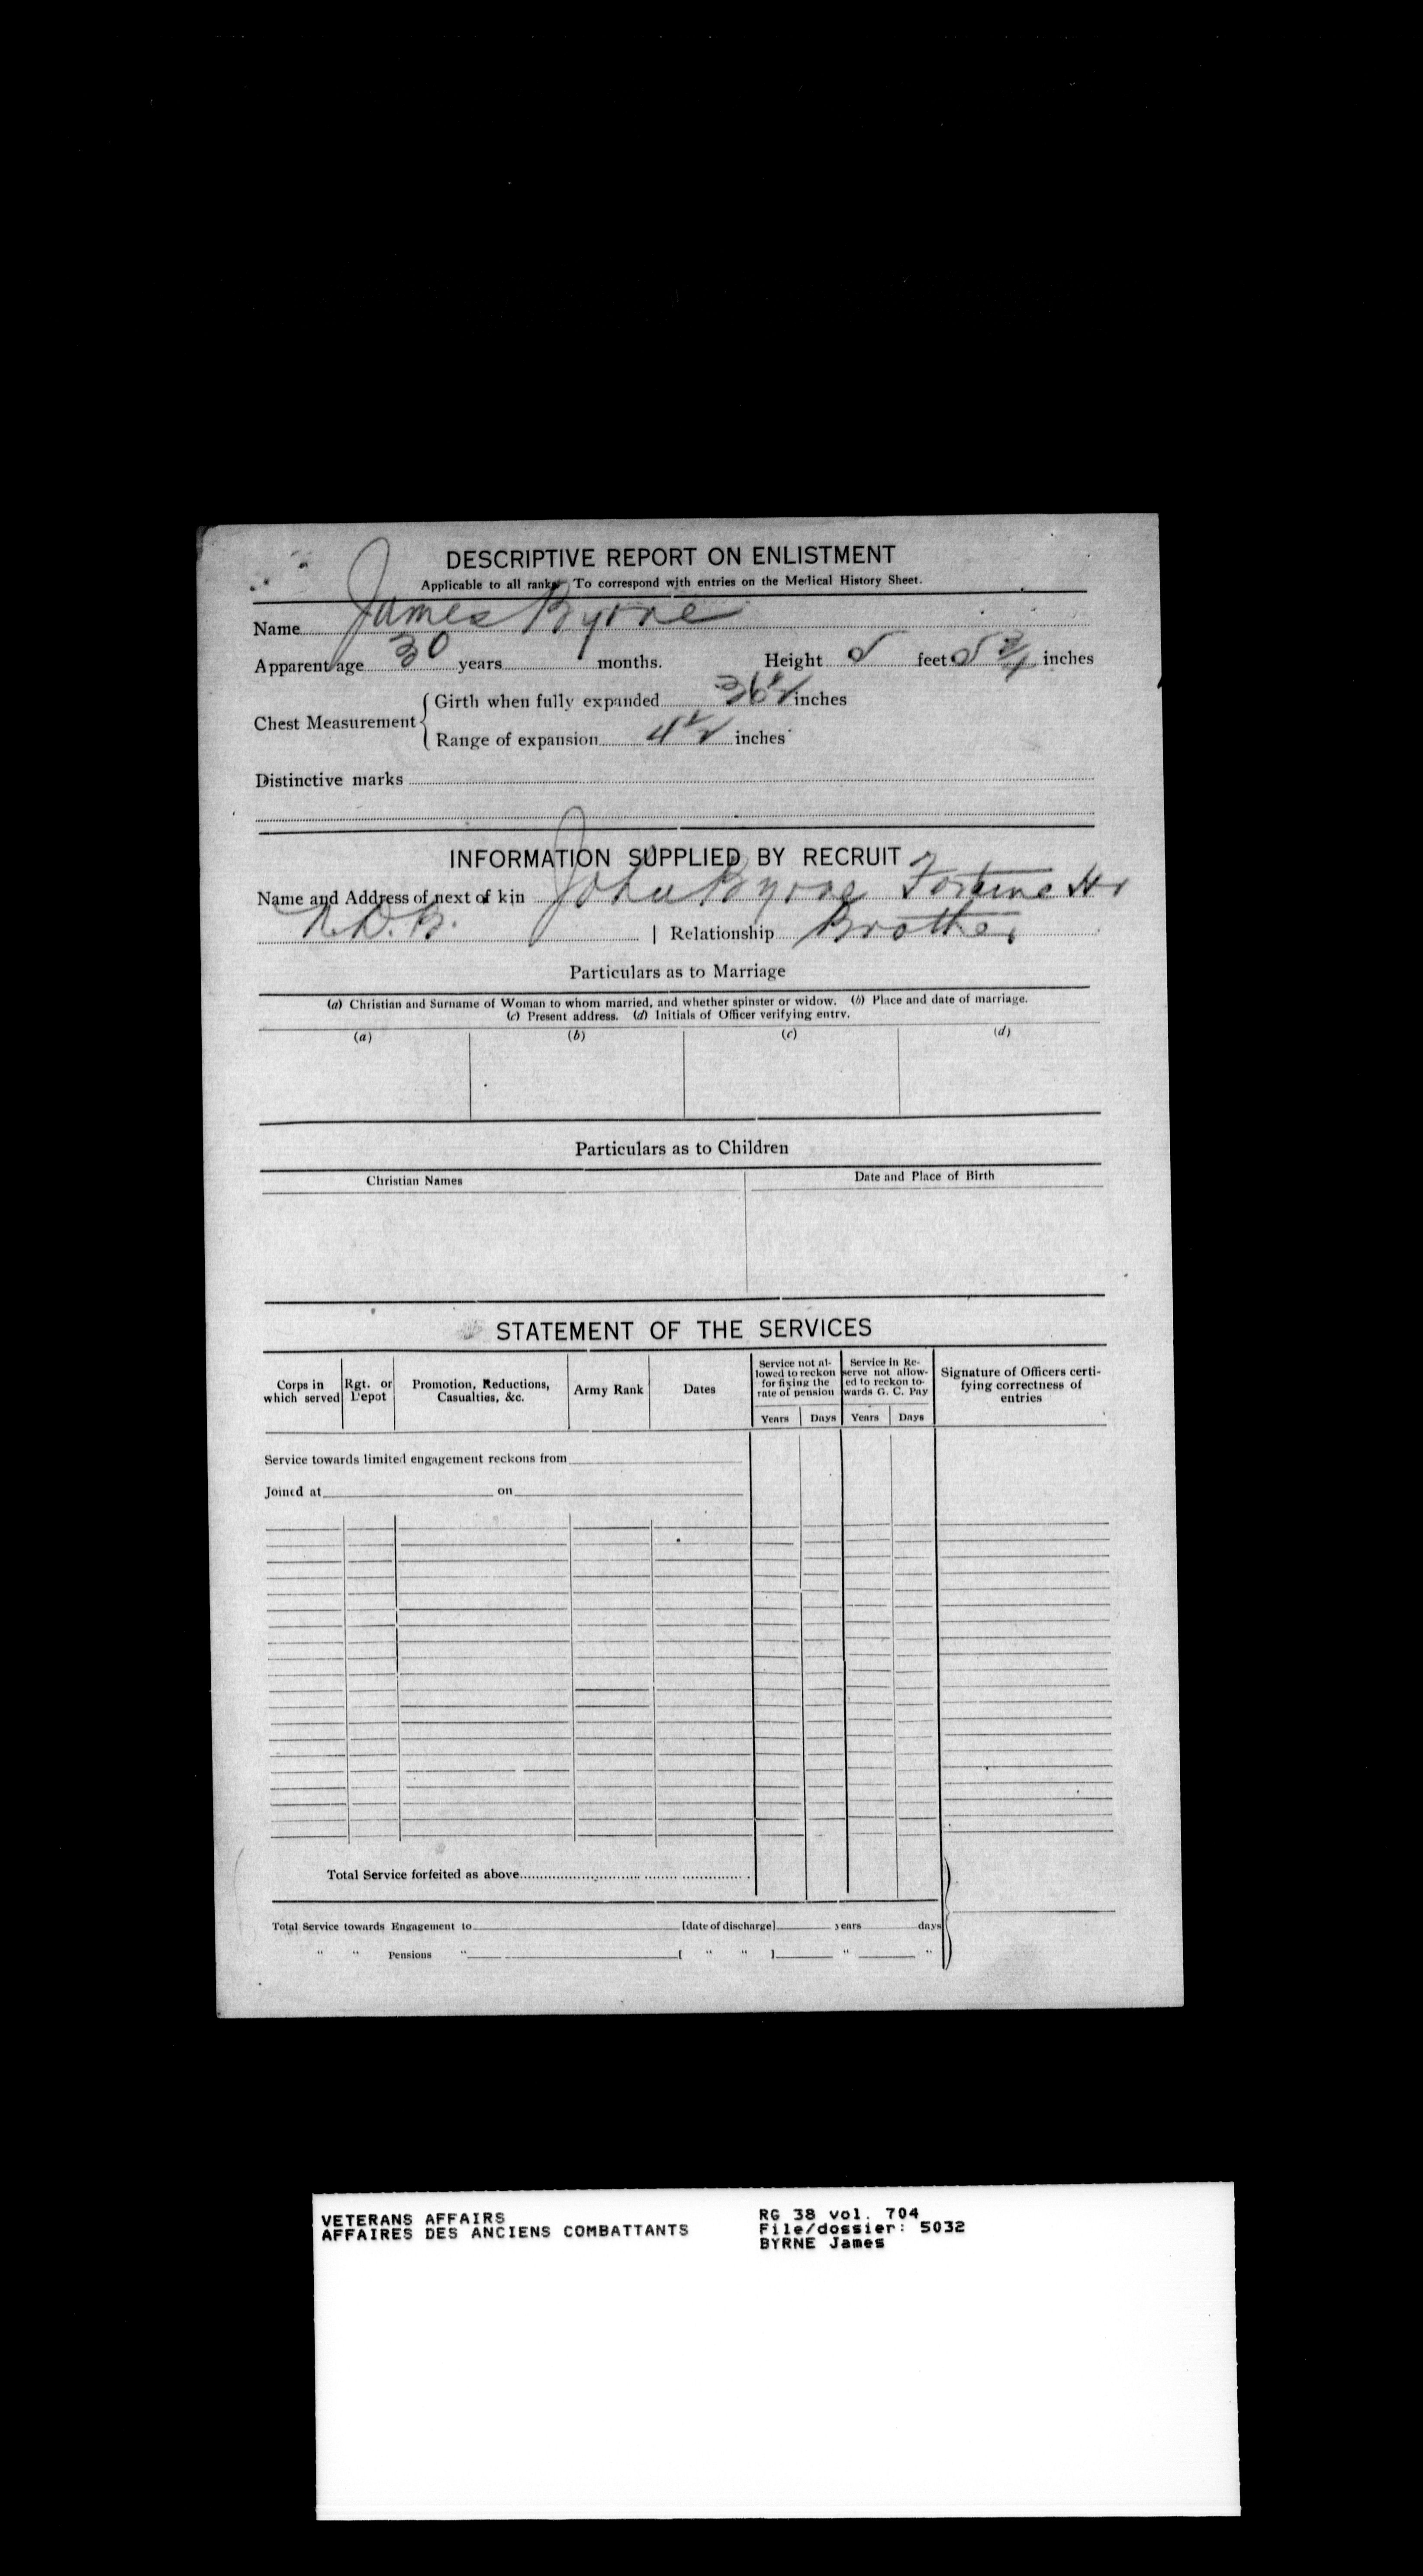 DESCRIPTIVE REPORT ON ENLISTMENT
Applicable to all ranks. To correspond with entries on the Medical History Sheet.
Name James Byrne
Apparent age 30 years months. Height 5 feet 5 3/4 inches
Chest Measurement { Girth when fully expanded 36 1/2 inches
Range of expansion 4 1/2 inches
Distinctive marks
INFORMATION SUPPLIED BY RECRUIT
Name and Address of next of kin John Byrne Fortune Hr
N.D.B. | Relationship Brother
Particulars as to Marriage
(a) Christian and Surname of Woman to whom married, and whether spinster or widow. (b) Place and date of marriage.
(c) Present address. (d) Initials of Officer verifying entry.
(a) (b) (c) (d)
Particulars as to Children
Christian Names Date and Place of Birth
STATEMENT OF THE SERVICES
Corps in which served Rgt. or Depot Promotion, Reductions, Casualties, &c. Army Rank Dates Service not allowed to reckon for fixing the rate of pension Service in Reserve not allowed to reckon towards G. C. Pay Signature of Officers certifying correctness of entries
Years Days Years Days
Service towards limited engagement reckons from
Joined at on
Total Service forfeited as above
Total Service towards Engagement to [date of discharge] years days
" " Pensions " [ " " ] " "
VETERANS AFFAIRS RG 38 vol. 704
AFFAIRES DES ANCIENS COMBATTANTS File/dossier: 5032
BYRNE James